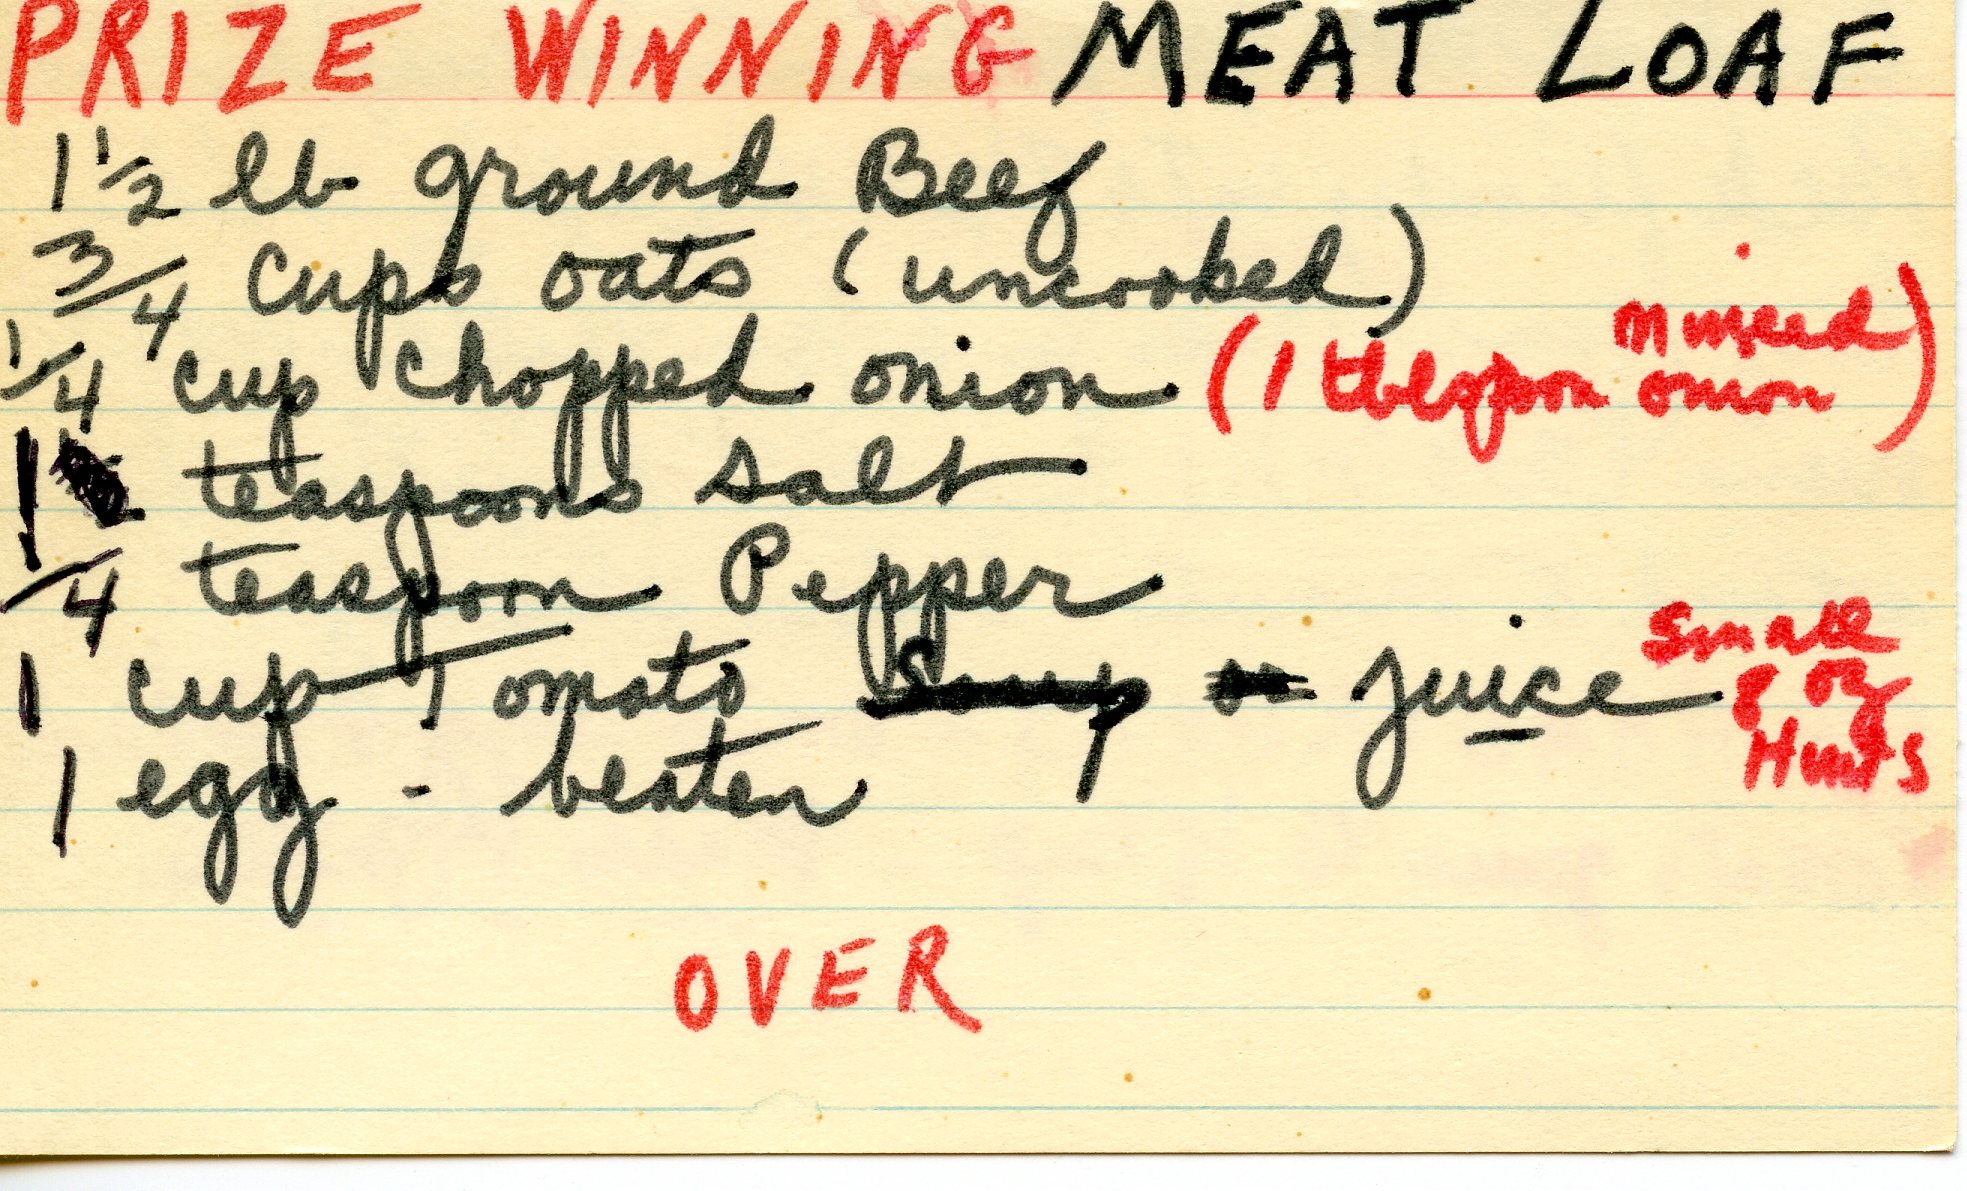 PRIZE WINNING MEAT LOAF
1 1/2 lb ground Beef
3/4 cups oats (uncooked)
1/4 cup chopped onion (1 tblespoon minced onion)
1 teaspoons salt
1/4 teaspoon Pepper
1 cup Tomato Soup or juice small 8 oz Hunts
1 egg - beaten
OVER